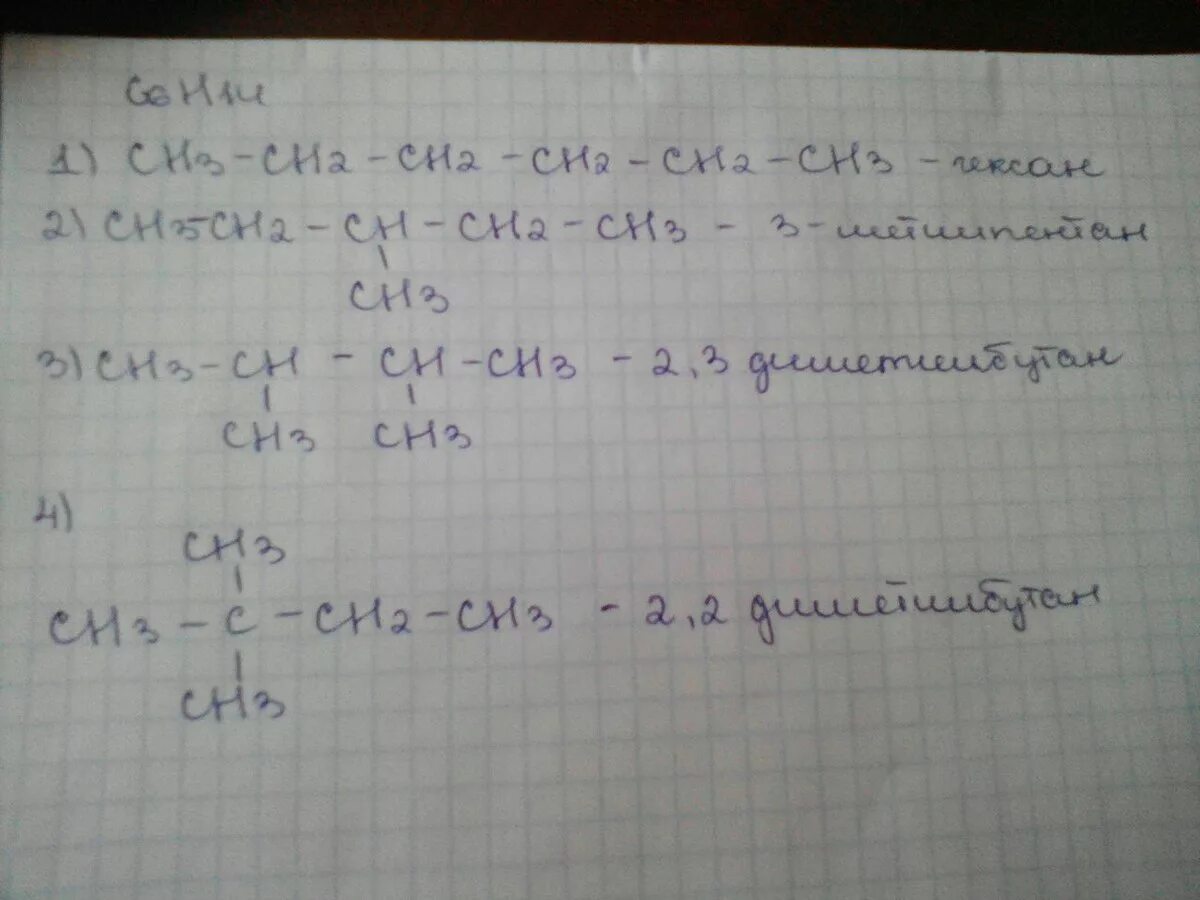 C6H14
1) CH3-CH2-CH2-CH2-CH2-CH3 - гексан
2) CH3-CH2-CH-CH2-CH3 - 3-метилпентан
CH3
3) CH3-CH - CH-CH3 - 2,3 диметилбутан
CH3 CH3
4)
CH3
CH3-C-CH2-CH3 - 2,2 диметилбутан
CH3